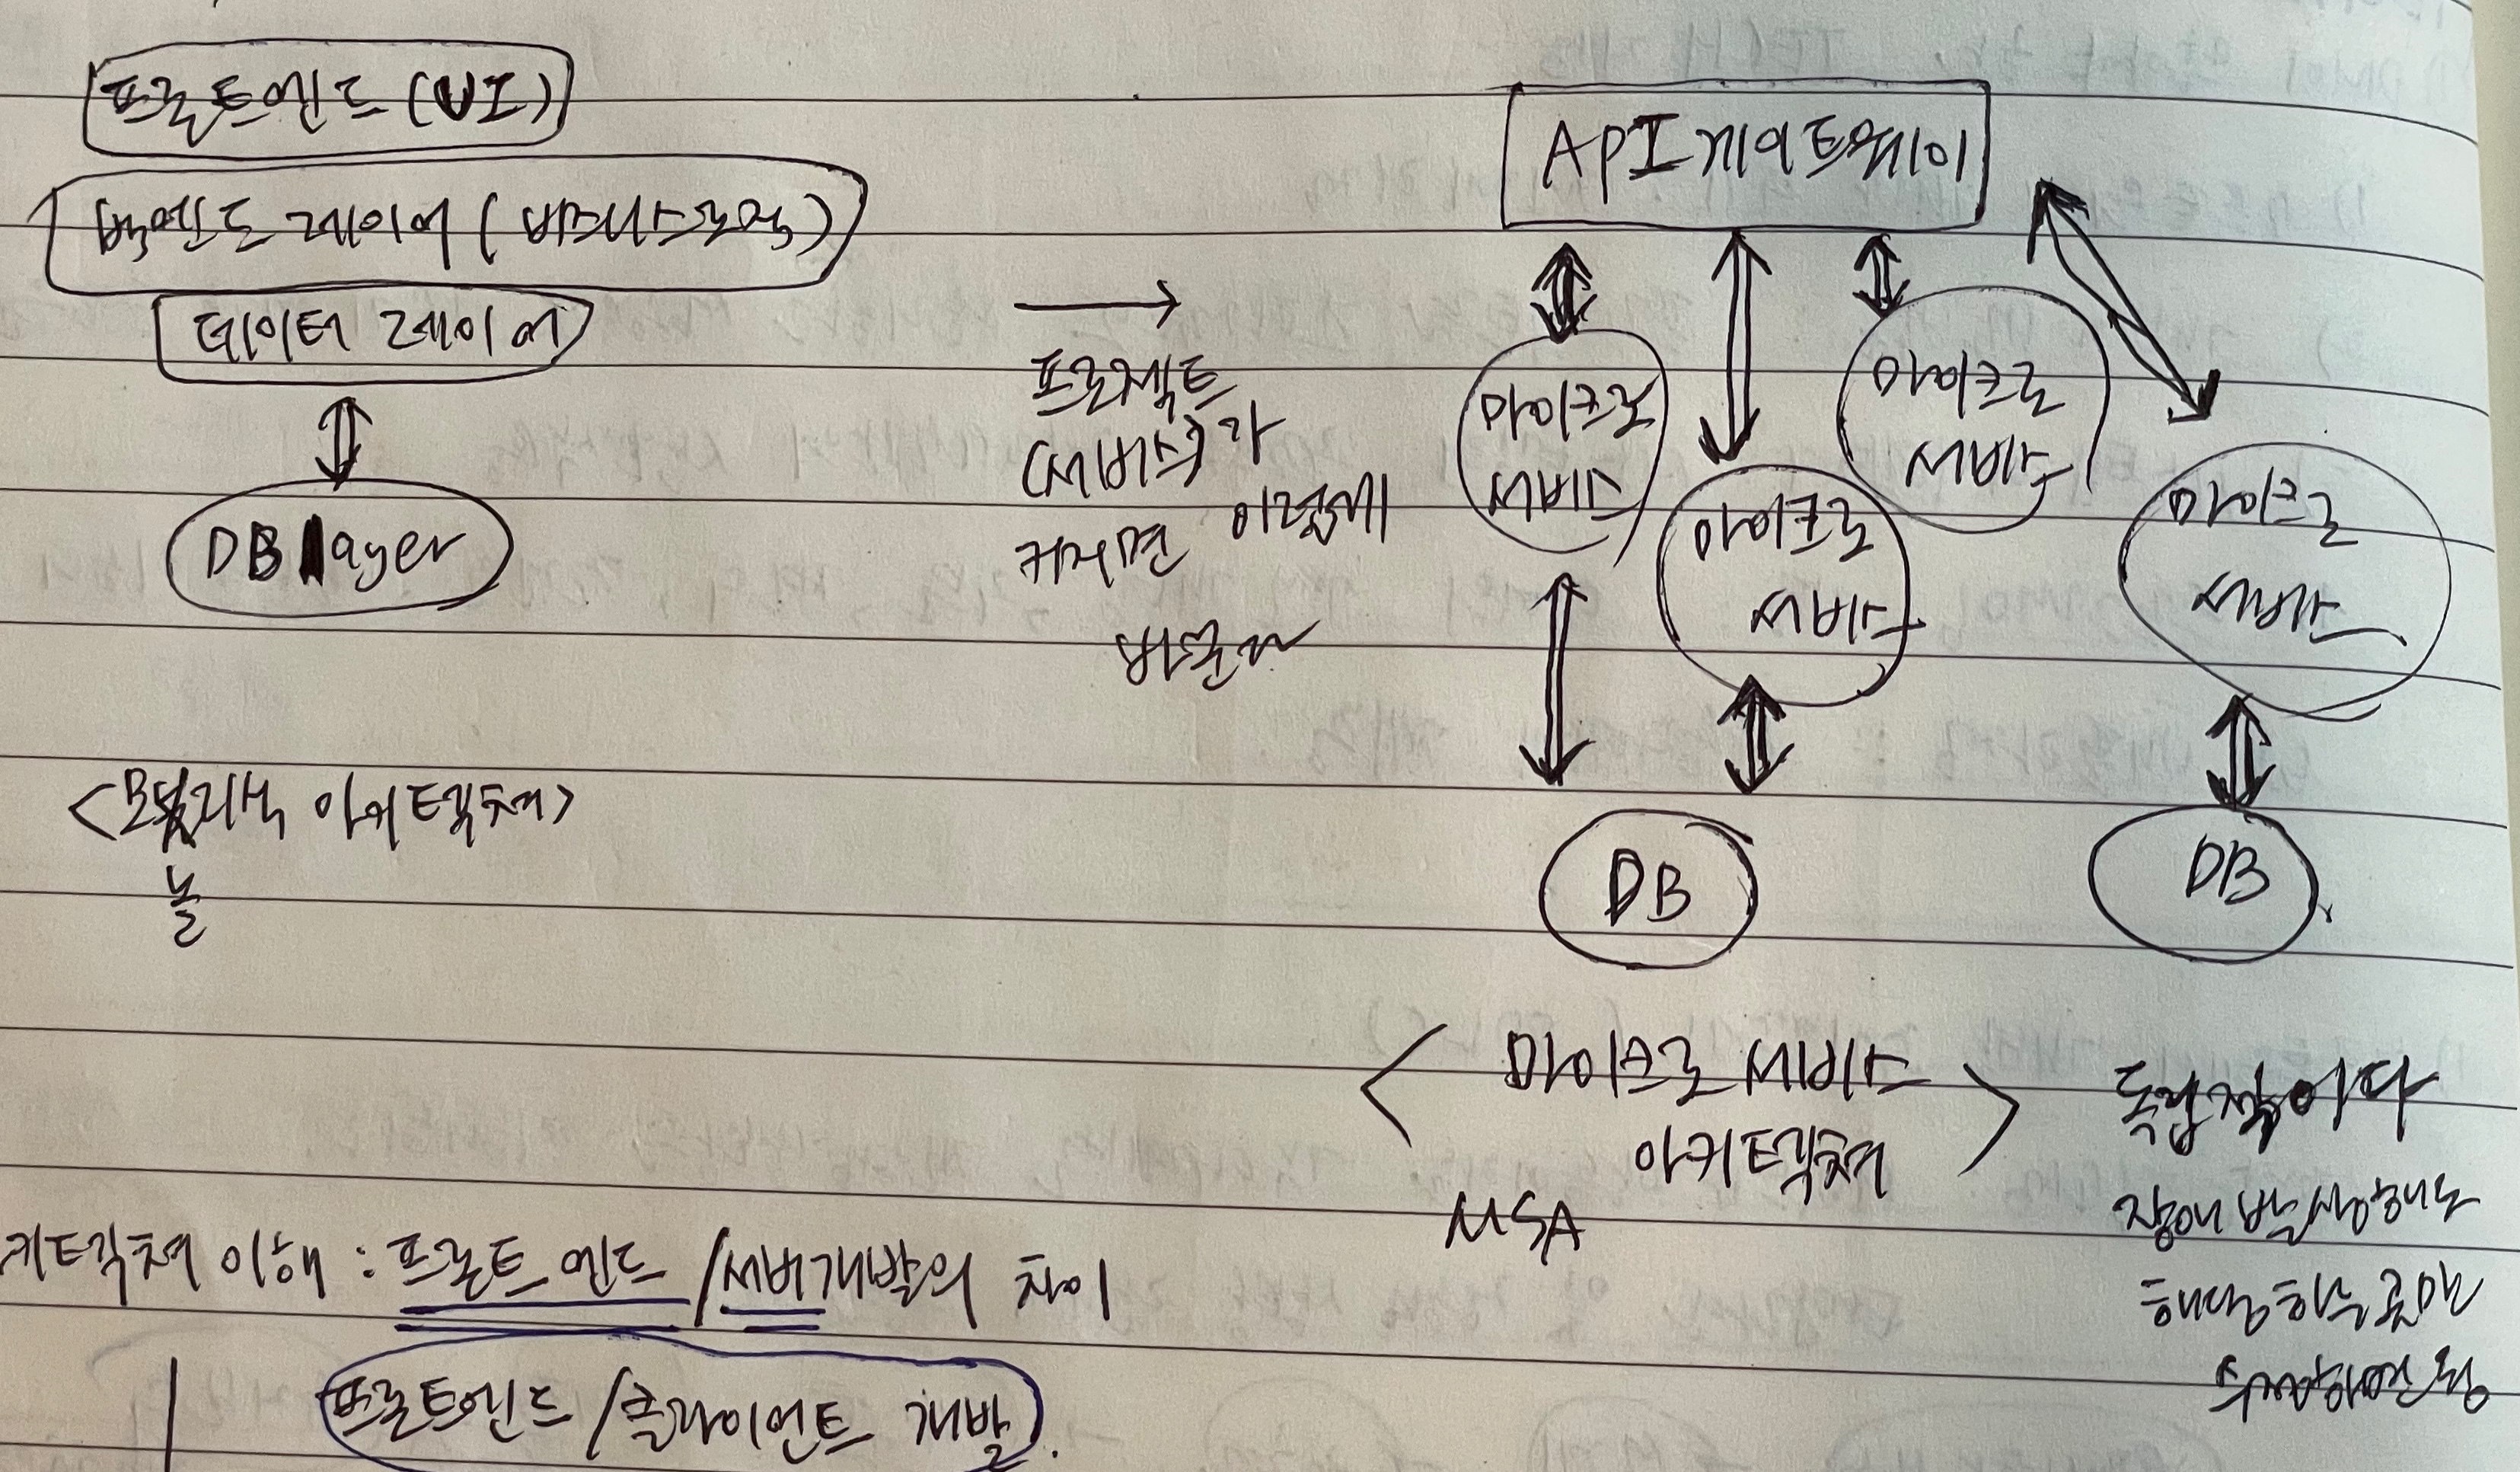 프론트엔드 (UI)
백엔드 레이어 (비즈니스로직)
데이터 레이어
DB layer
<모놀리식 아키텍쳐>
놀
→
프로젝트
(서비스)가
커지면 이렇게
바뀐다
API 게이트웨이
마이크로
서비스
마이크로
서비스
마이크로
서비스
마이크로
서비스
DB
DB
< 마이크로 서비스
아키텍쳐 >
MSA
독립적이다
장애 발생해도
해당하는 곳만
수정하면 됨
키텍쳐 이해 : 프론트 엔드 / 서버개발의 차이
프론트엔드 / 클라이언트 개발.